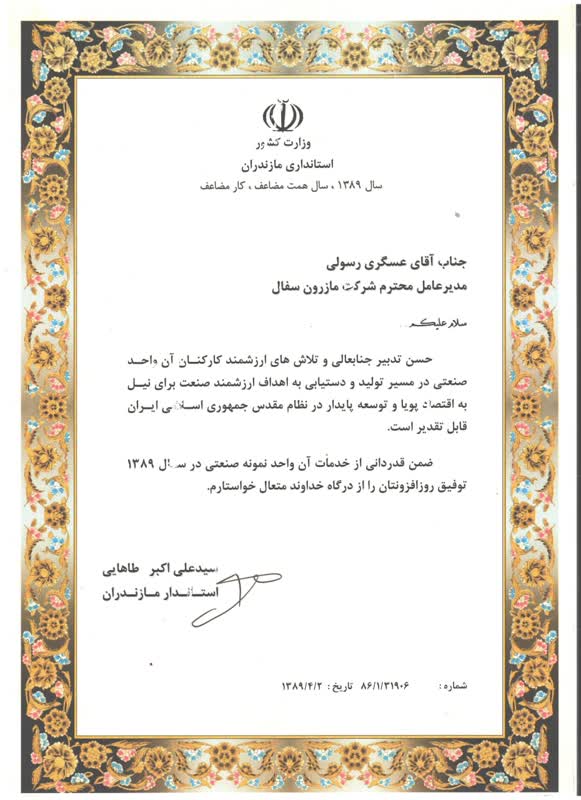 وزارت کشور
استانداری مازندران
سال ۱۳۸۹ ، سال همت مضاعف ، کار مضاعف
جناب آقای عسگری رسولی
مدیرعامل محترم شرکت مازرون سفال
سلام علیکم
حسن تدبیر جنابعالی و تلاش های ارزشمند کارکنان آن واحد
صنعتی در مسیر تولید و دستیابی به اهداف ارزشمند صنعت برای نیل
به اقتصاد پویا و توسعه پایدار در نظام مقدس جمهوری اسلامی ایران
قابل تقدیر است.
ضمن قدردانی از خدمات آن واحد نمونه صنعتی در سال ۱۳۸۹
توفیق روزافزونتان را از درگاه خداوند متعال خواستارم.
سیدعلی اکبر طاهایی
استاندار مازندران
شماره : ۸۶/۱/۳۱۹۰۶ تاریخ : ۱۳۸۹/۴/۲